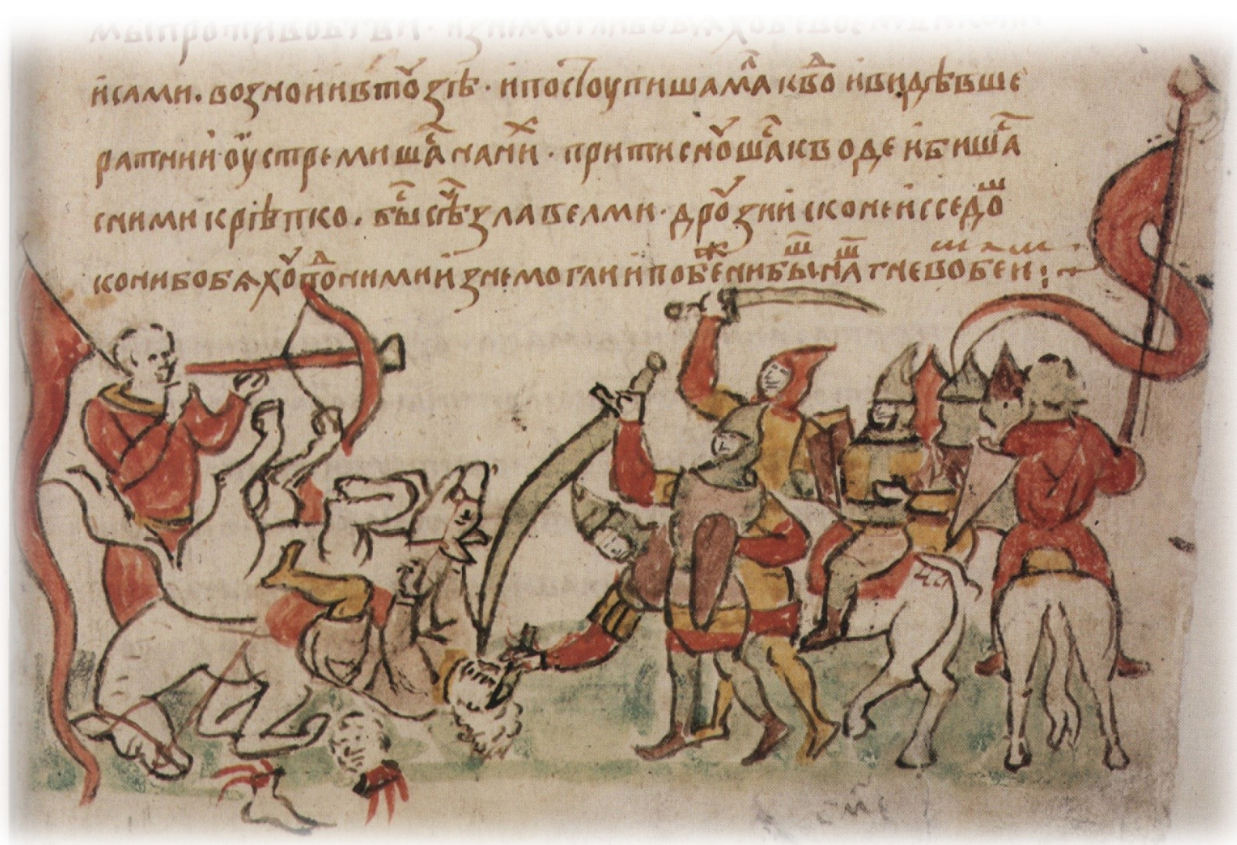 и сами . во знои и в тꙋзѣ · и постоупишамⷧа к вⷣо и видѣвше
ратнии оустремишⷭа на ниⷯ · притиснꙋшⷭа к воде и бишⷭа
с ними крѣпко . быⷭ сѣⷱ зла велми · дрꙋзии с конеи сседоⷲ
кони бо бѧхꙋ поⷣ ними изнемогли и побеⷤни быⷲ наⷲ гнево бѣи :~